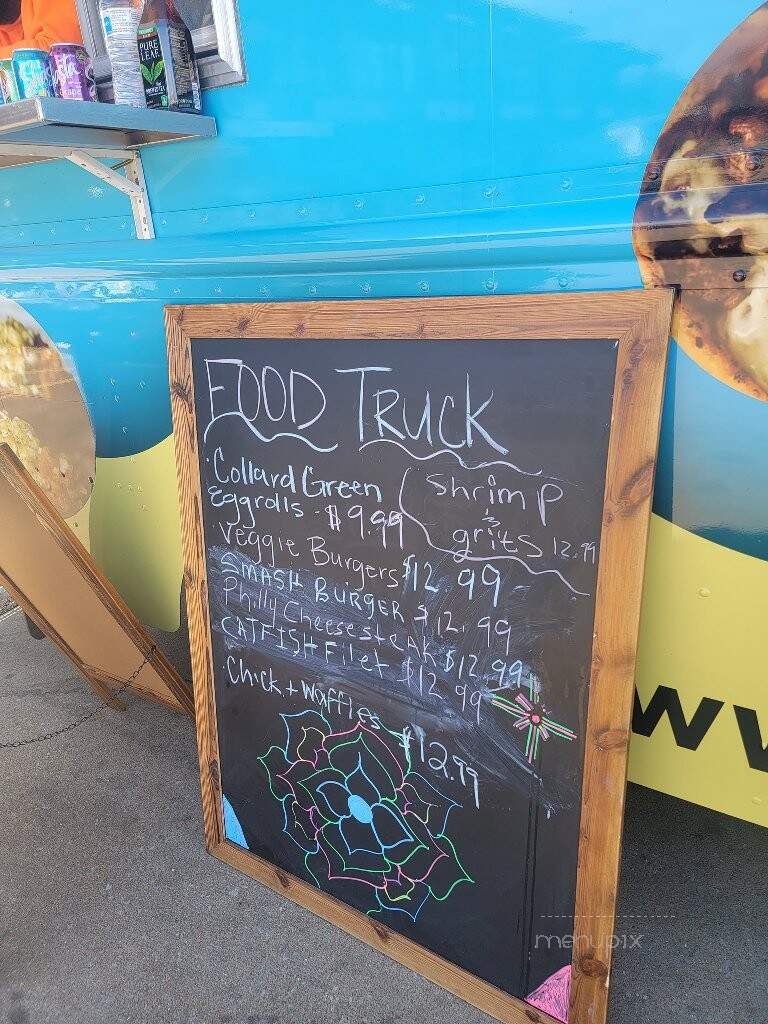 PURE LEAF
FOOD TRUCK
· Collard Green
Eggrolls - $9.99
Shrimp
&
grits 12.99
· Veggie Burgers $12.99
SMASH BURGER $12.99
Philly Cheesesteak $12.99
CATFISH Filet $12.99
· Chick + Waffles $12.99
menupix